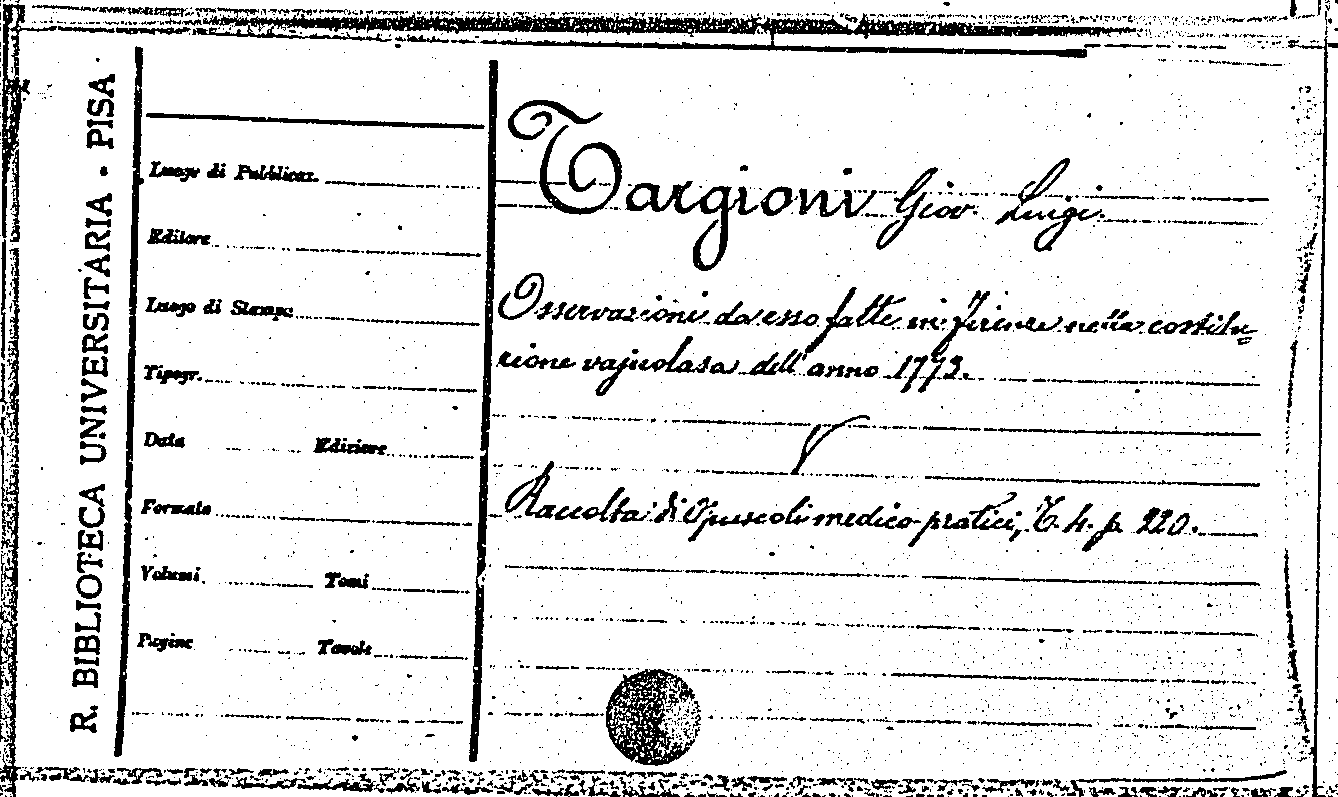 R. BIBLIOTECA UNIVERSITARIA - PISA
Luogo di Pubblicaz.
Editore
Luogo di Stampa
Tipogr.
Data Edizione
Formato
Volumi Tomi
Pagine Tavole
Targioni Giov. Luigi.
Osservazioni da esso fatte in Firenze nella costitu=
zione vajuolosa dell'anno 1773.
Raccolta di Opuscoli medico-pratici, T. 4. p. 220.